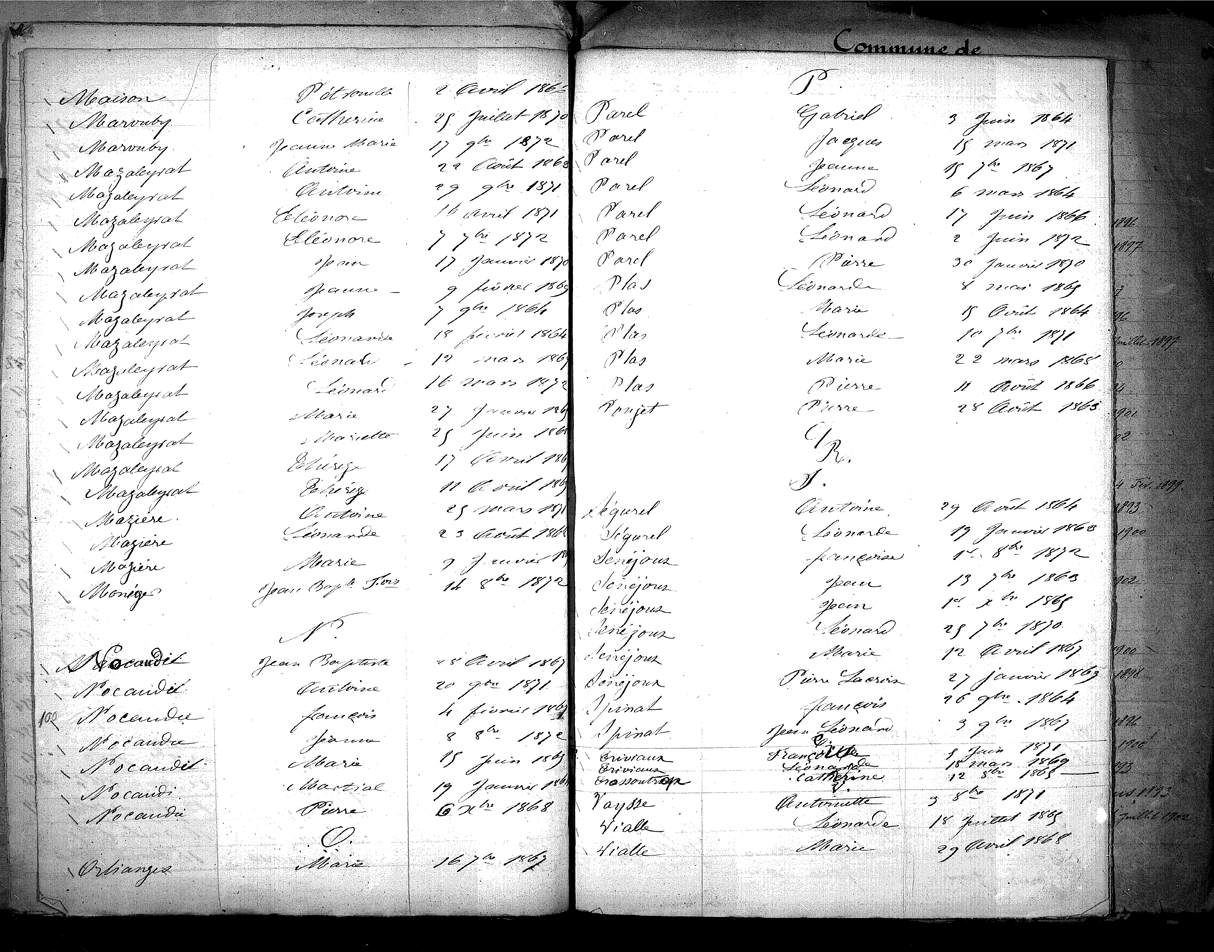 Maison Pétronille 2 Avril
Marouby Catherine 25 Juillet 1870
Marouby Jeanne Marie 17 9bre 1872
Mazaleyrat Antoine 22 Août 1868
Mazaleyrat Antoine 29 9bre 1871
Mazaleyrat Eléonore 16 avril 1871
Mazaleyrat Eléonore 7 7bre 1872
Mazaleyrat Jean 17 Janvier 1870
Mazaleyrat Jeanne 9 février 1869
Mazaleyrat Joseph 7 9bre 1864
Mazaleyrat Léonarde 18 février 1864
Mazaleyrat Léonard 12 mars
Mazaleyrat Léonard 16 mars 1872
Mazaleyrat Marie 27 Janvier
Mazaleyrat Mariette 25 Juin
Mazaleyrat Thérèze 17 Avril
Mazaleyrat Thérèze 11 Avril
Mazière Antoine 25 mars
Mazière Léonarde 23 Août
Mazière Marie 9 Janvier
Monéger Jean Bapte Fois 14 8bre 1872
N.
Nocaudie Jean Baptiste 28 Avril 1867
Nocaudie Antoine 20 9bre 1871
100 Nocaudie françois 4 février
Nocaudie Jeanne 8 8bre 1872
Nocaudie Marie 15 Juin
Nocaudi Martial 19 Janvier
Nocaudie Pierre 6 Xbre 1868
O.
Orlianges Marie 16 7bre 1867
Commune de
P.
Parel Gabriel 3 Juin 1864
Parel Jacques 15 mars 1871
Parel Jeanne 15 7bre 1867
Parel Léonard 6 mars 1864
Parel Léonard 17 Juin 1866
Parel Léonard 2 Juin 1872
Parel Pierre 30 Janvier 1870
Plas Léonarde 8 mai 1869
Plas Marie 15 Août 1864
Plas Léonarde 10 7bre 1871
Plas Marie 22 mars 1868
Plas Pierre 11 Août 1866
Poujet Pierre 28 Août 1863
Q
R.
S.
Ségurel Antoine 29 Août 1864
Ségurel Léonarde 19 Janvier 1863
Sénéjoux françoise 1er 8bre 1872
Sénéjoux Jean 13 7bre 1863
Sénéjoux Jean 1er Xbre 1865
Sénéjoux Léonard 25 7bre 1870
Sénéjoux Marie 12 Avril 1867
Sénéjoux Pierre Lacroix 27 janvier 1869
Spinat françois 26 9bre 1864
Spinat Jean Léonard 3 9bre 1867
Triviaux 5 Juin 1871
Triviaux Léonarde 18 mars 1869
Catherine 12 8bre 1865
Vaysse Antoinette 3 8bre 1871
Vialle Léonarde 18 Juillet 1865
Vialle Marie 29 Avril 1868
1896
1897
juillet 1897
1901
4 Fév. 1899
1893
1900
1902
1900
1898
1896
1900